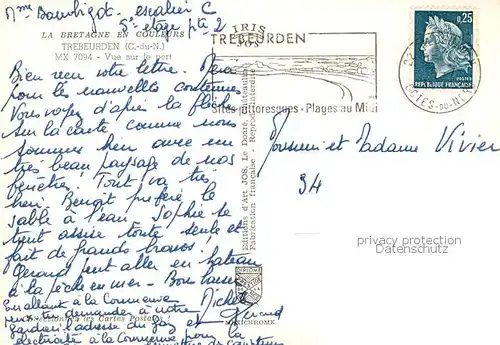 Mme Bourbigot - escalier C
5e étage pte 2
LA BRETAGNE EN COULEURS
TREBEURDEN (C.-du-N.)
MX 7094 - Vue sur le port
IRIS
JOS
TREBEURDEN
Sites pittoresques - Plages au Midi
0,25
POSTES
REPUBLIQUE FRANÇAISE
COTES-DU-NORD
Bien reçu votre lettre. Merci
pour les nouvelles
Vous voyez d'après la flèche
sur la carte comme nous
sommes bien avec un
très beau paysage de nos
fenêtres. Tout va très
bien. Benoît préfère le
sable à l'eau. Sophie se
tient assise toute seule et
fait de grands
Gérard peut aller en bateau
à la pêche en mer. Bons baisers
Michèle
Gérard
En allant à la Commerve
pourrez demander à notre
gardien l'adresse du gaz et
électricité à la Commerve pour la
Monsieur et Madame Vivier
94
Editions d'Art JOS, Le Doaré, Châteaulin
Fabrication française - Reproduction interdite
Collectionnez les Cartes Postales
MEXICHROME
privacy protection
Datenschutz